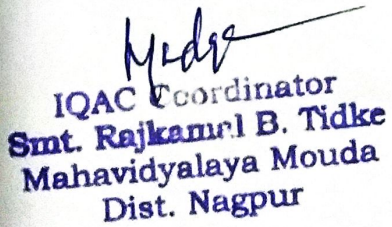 IQAC Coordinator
Smt. Rajkamal B. Tidke
Mahavidyalaya Mouda
Dist. Nagpur